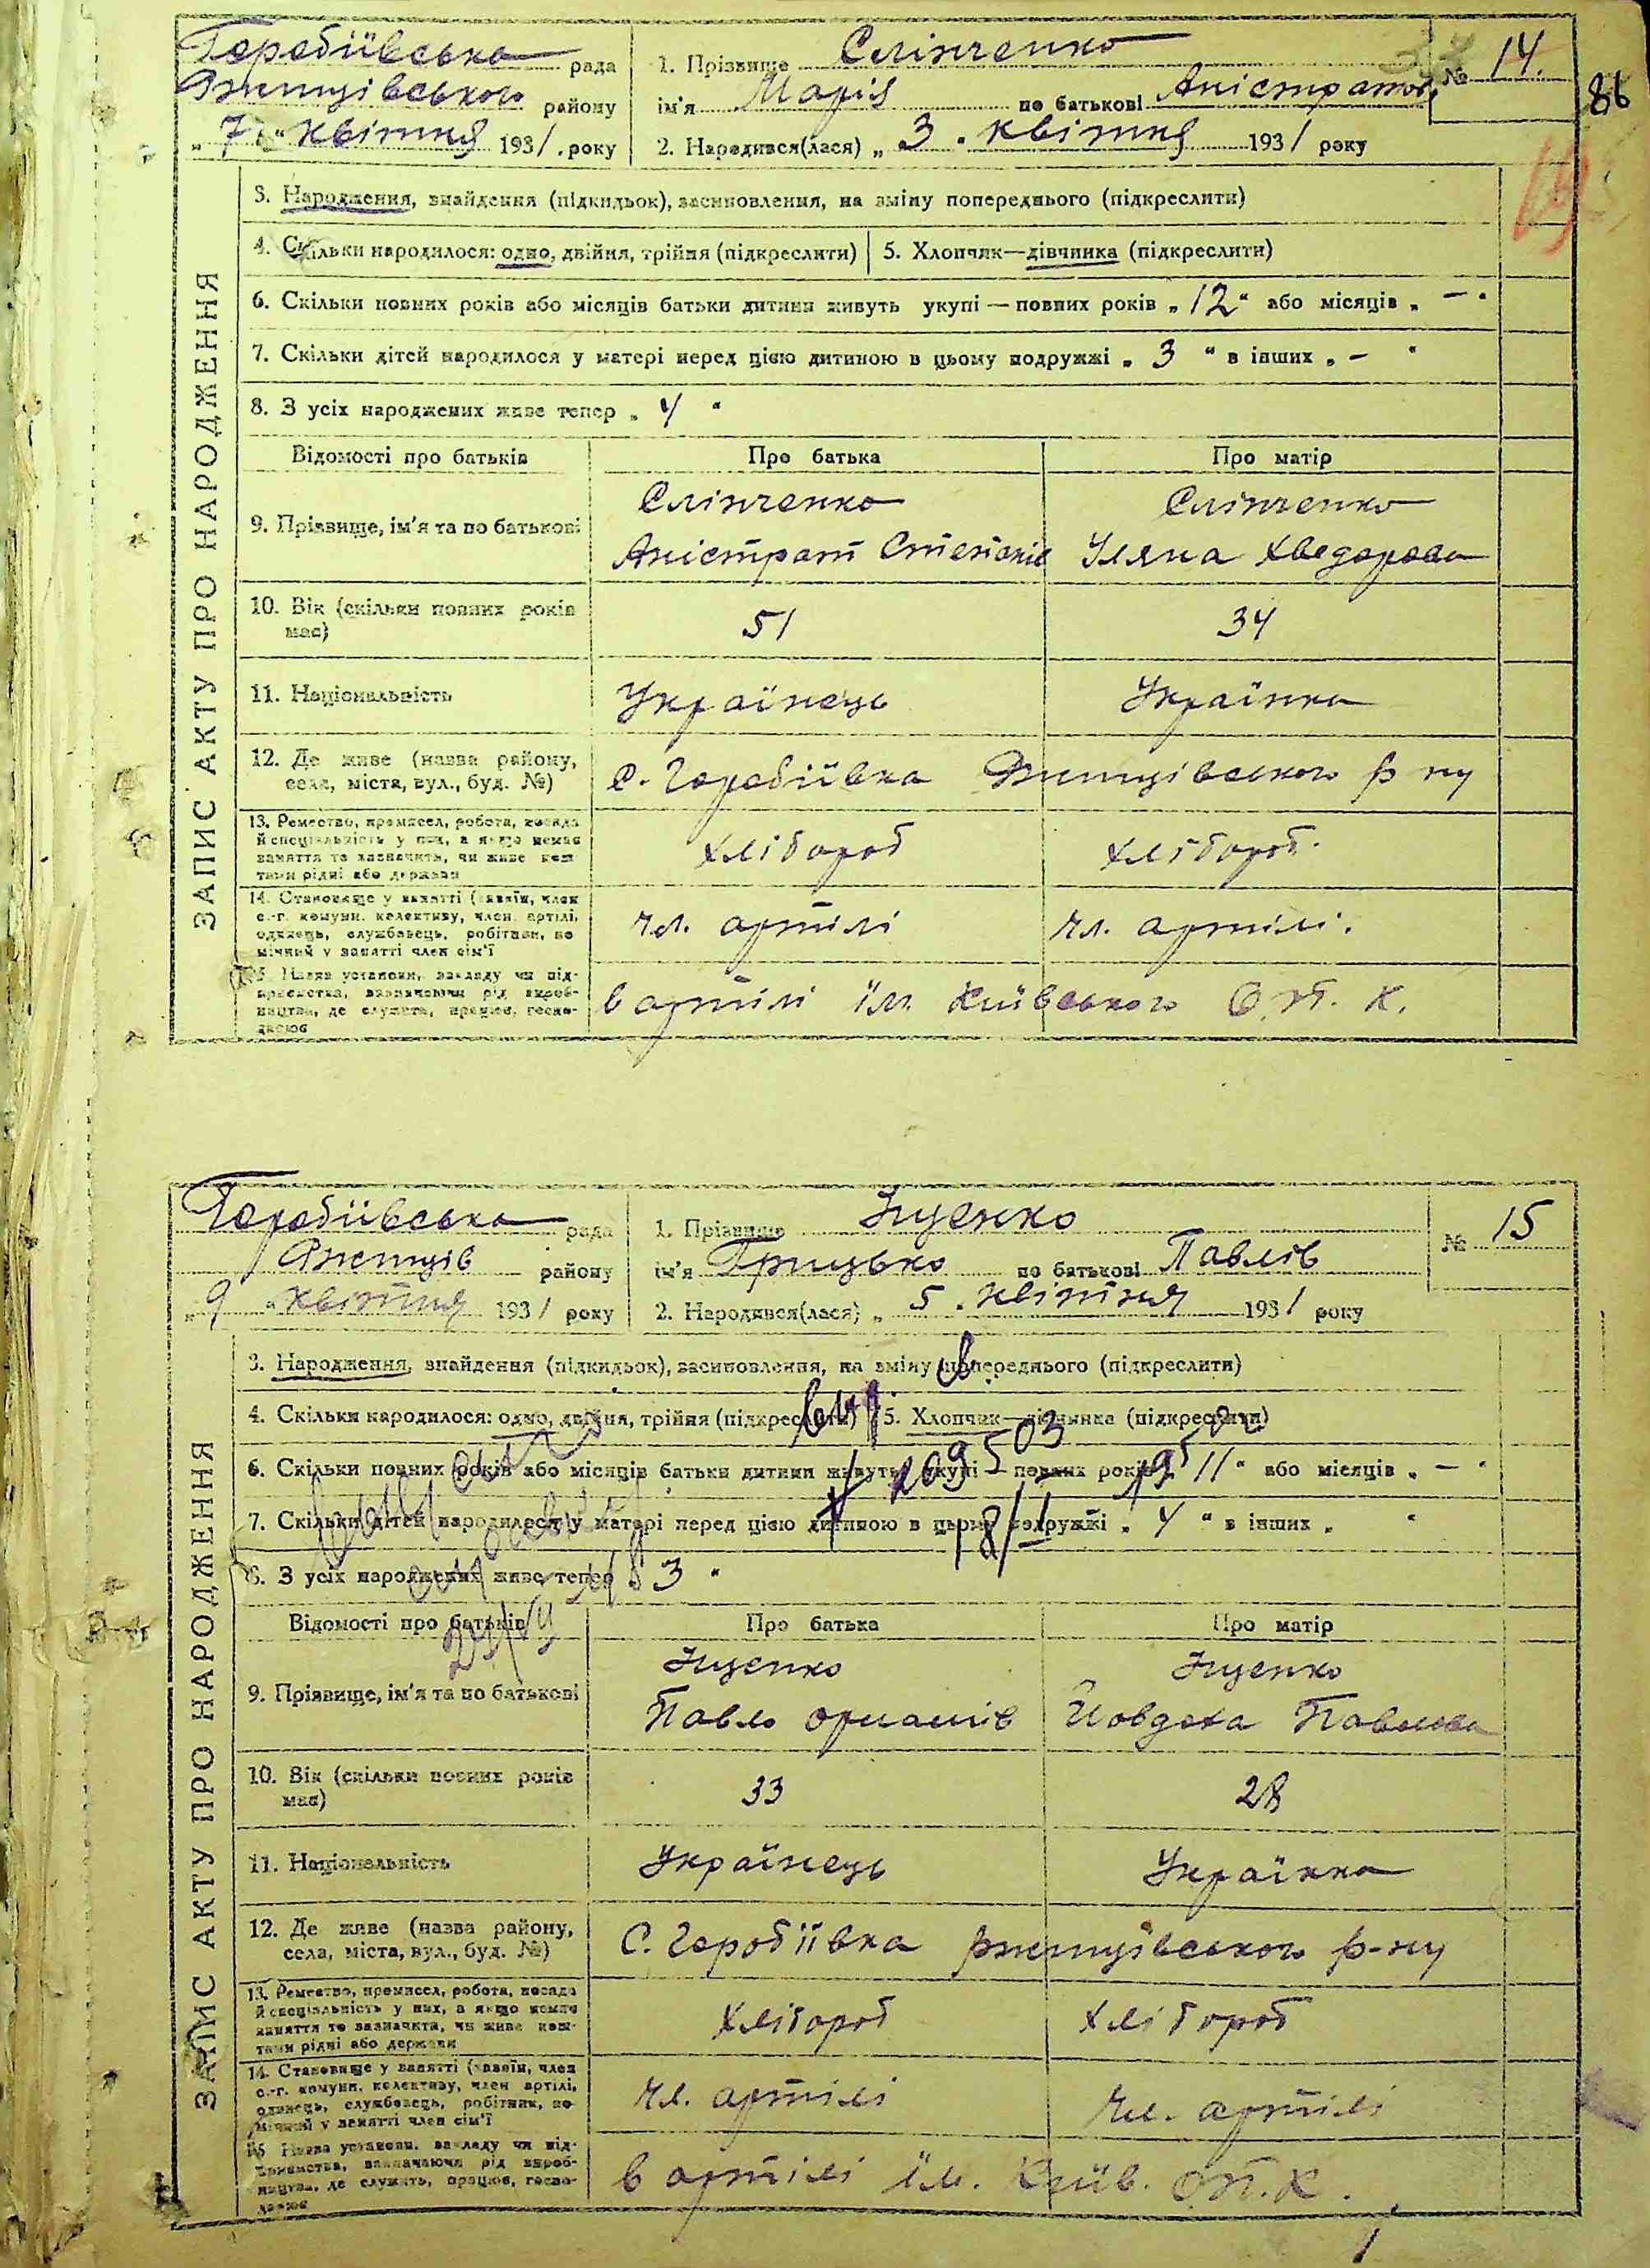 Горобіївська рада
Ржищівського району
„7“ квітня 1931 року
1. Прізвище Сліпченко
ім'я Марія по батькові Аністратов.
2. Народився(лася) „3“ квітня 1931 року
№ 14.
86
ЗАПИС АКТУ ПРО НАРОДЖЕННЯ
3. Народження, знайдення (підкидьок), засиновлення, на зміну попереднього (підкреслити)
4. Скільки народилося: одно, двійня, трійня (підкреслити) 5. Хлопчик—дівчинка (підкреслити)
6. Скільки повних років або місяців батьки дитини живуть укупі — повних років „12“ або місяців „—“
7. Скільки дітей народилося у матері перед цією дитиною в цьому подружжі „3“ в інших „—“
8. З усіх народжених живе тепер „4“
Відомості про батьків Про батька Про матір
9. Прізвище, ім'я та по батькові
Сліпченко Сліпченко
Аністрат Степанів Уляна Хведорова
10. Вік (скільки повних років
має)
51 34
11. Національність Українець Українка
12. Де живе (назва району,
села, міста, вул., буд. №)
с. Горобіївка Ржищівського р-ну
13. Ремество, промисел, робота, посада
й спеціальність у них, а якщо немає
заняття то зазначить, чи живе кош-
тами рідні або держави
Хлібороб Хлібороб.
14. Становище у занятті (хазяїн, член
с.-г. комуни, колективу, член артілі,
одинець, службовець, робітник, по-
мічний у занятті член сім'ї
чл. артілі чл. артілі.
15 Назва установи, закладу чи під-
приємства, зазначаючи рід вироб-
ництва, де служить, працює, госпо-
дарює
в артілі їм. Київського О. П. К.
Горобіївська рада
Ржищів району
„9“ квітня 1931 року
1. Прізвище Іщенко
ім'я Грицько по батькові Павлів
2. Народився(лася) „5“ квітня 1931 року
№ 15
ЗАПИС АКТУ ПРО НАРОДЖЕННЯ
3. Народження, знайдення (підкидьок), засиновлення, на зміну попереднього (підкреслити)
4. Скільки народилося: одно, двійня, трійня (підкреслити) 5. Хлопчик—дівчинка (підкреслити)
6. Скільки повних років або місяців батьки дитини живуть укупі — повних років „11“ або місяців „—“
7. Скільки дітей народилося у матері перед цією дитиною в цьому подружжі „4“ в інших „ “
8. З усіх народжених живе тепер „3“
Відомості про батьків Про батька Про матір
9. Прізвище, ім'я та по батькові
Іщенко Іщенко
Павло Йовдоха Павлова
10. Вік (скільки повних років
має)
33 28
11. Національність Українець Українка
12. Де живе (назва району,
села, міста, вул., буд. №)
С. Горобіївка Ржищівського р-ну
13. Ремество, промисел, робота, посада
й спеціальність у них, а якщо немає
заняття то зазначить, чи живе кош-
тами рідні або держави
Хлібороб Хлібороб
14. Становище у занятті (хазяїн, член
с.-г. комуни, колективу, член артілі,
одинець, службовець, робітник, по-
мічний у занятті член сім'ї
чл. артілі чл. артілі
15 Назва установи, закладу чи під-
приємства, зазначаючи рід вироб-
ництва, де служить, працює, госпо-
дарює
в артілі їм. Київ. О.П.К.